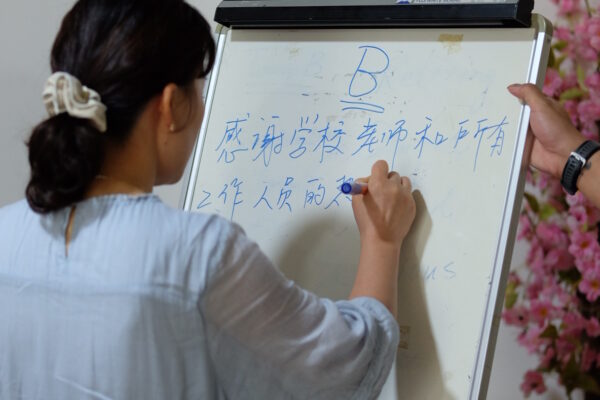 B
感谢学校老师和所有
工作人员的